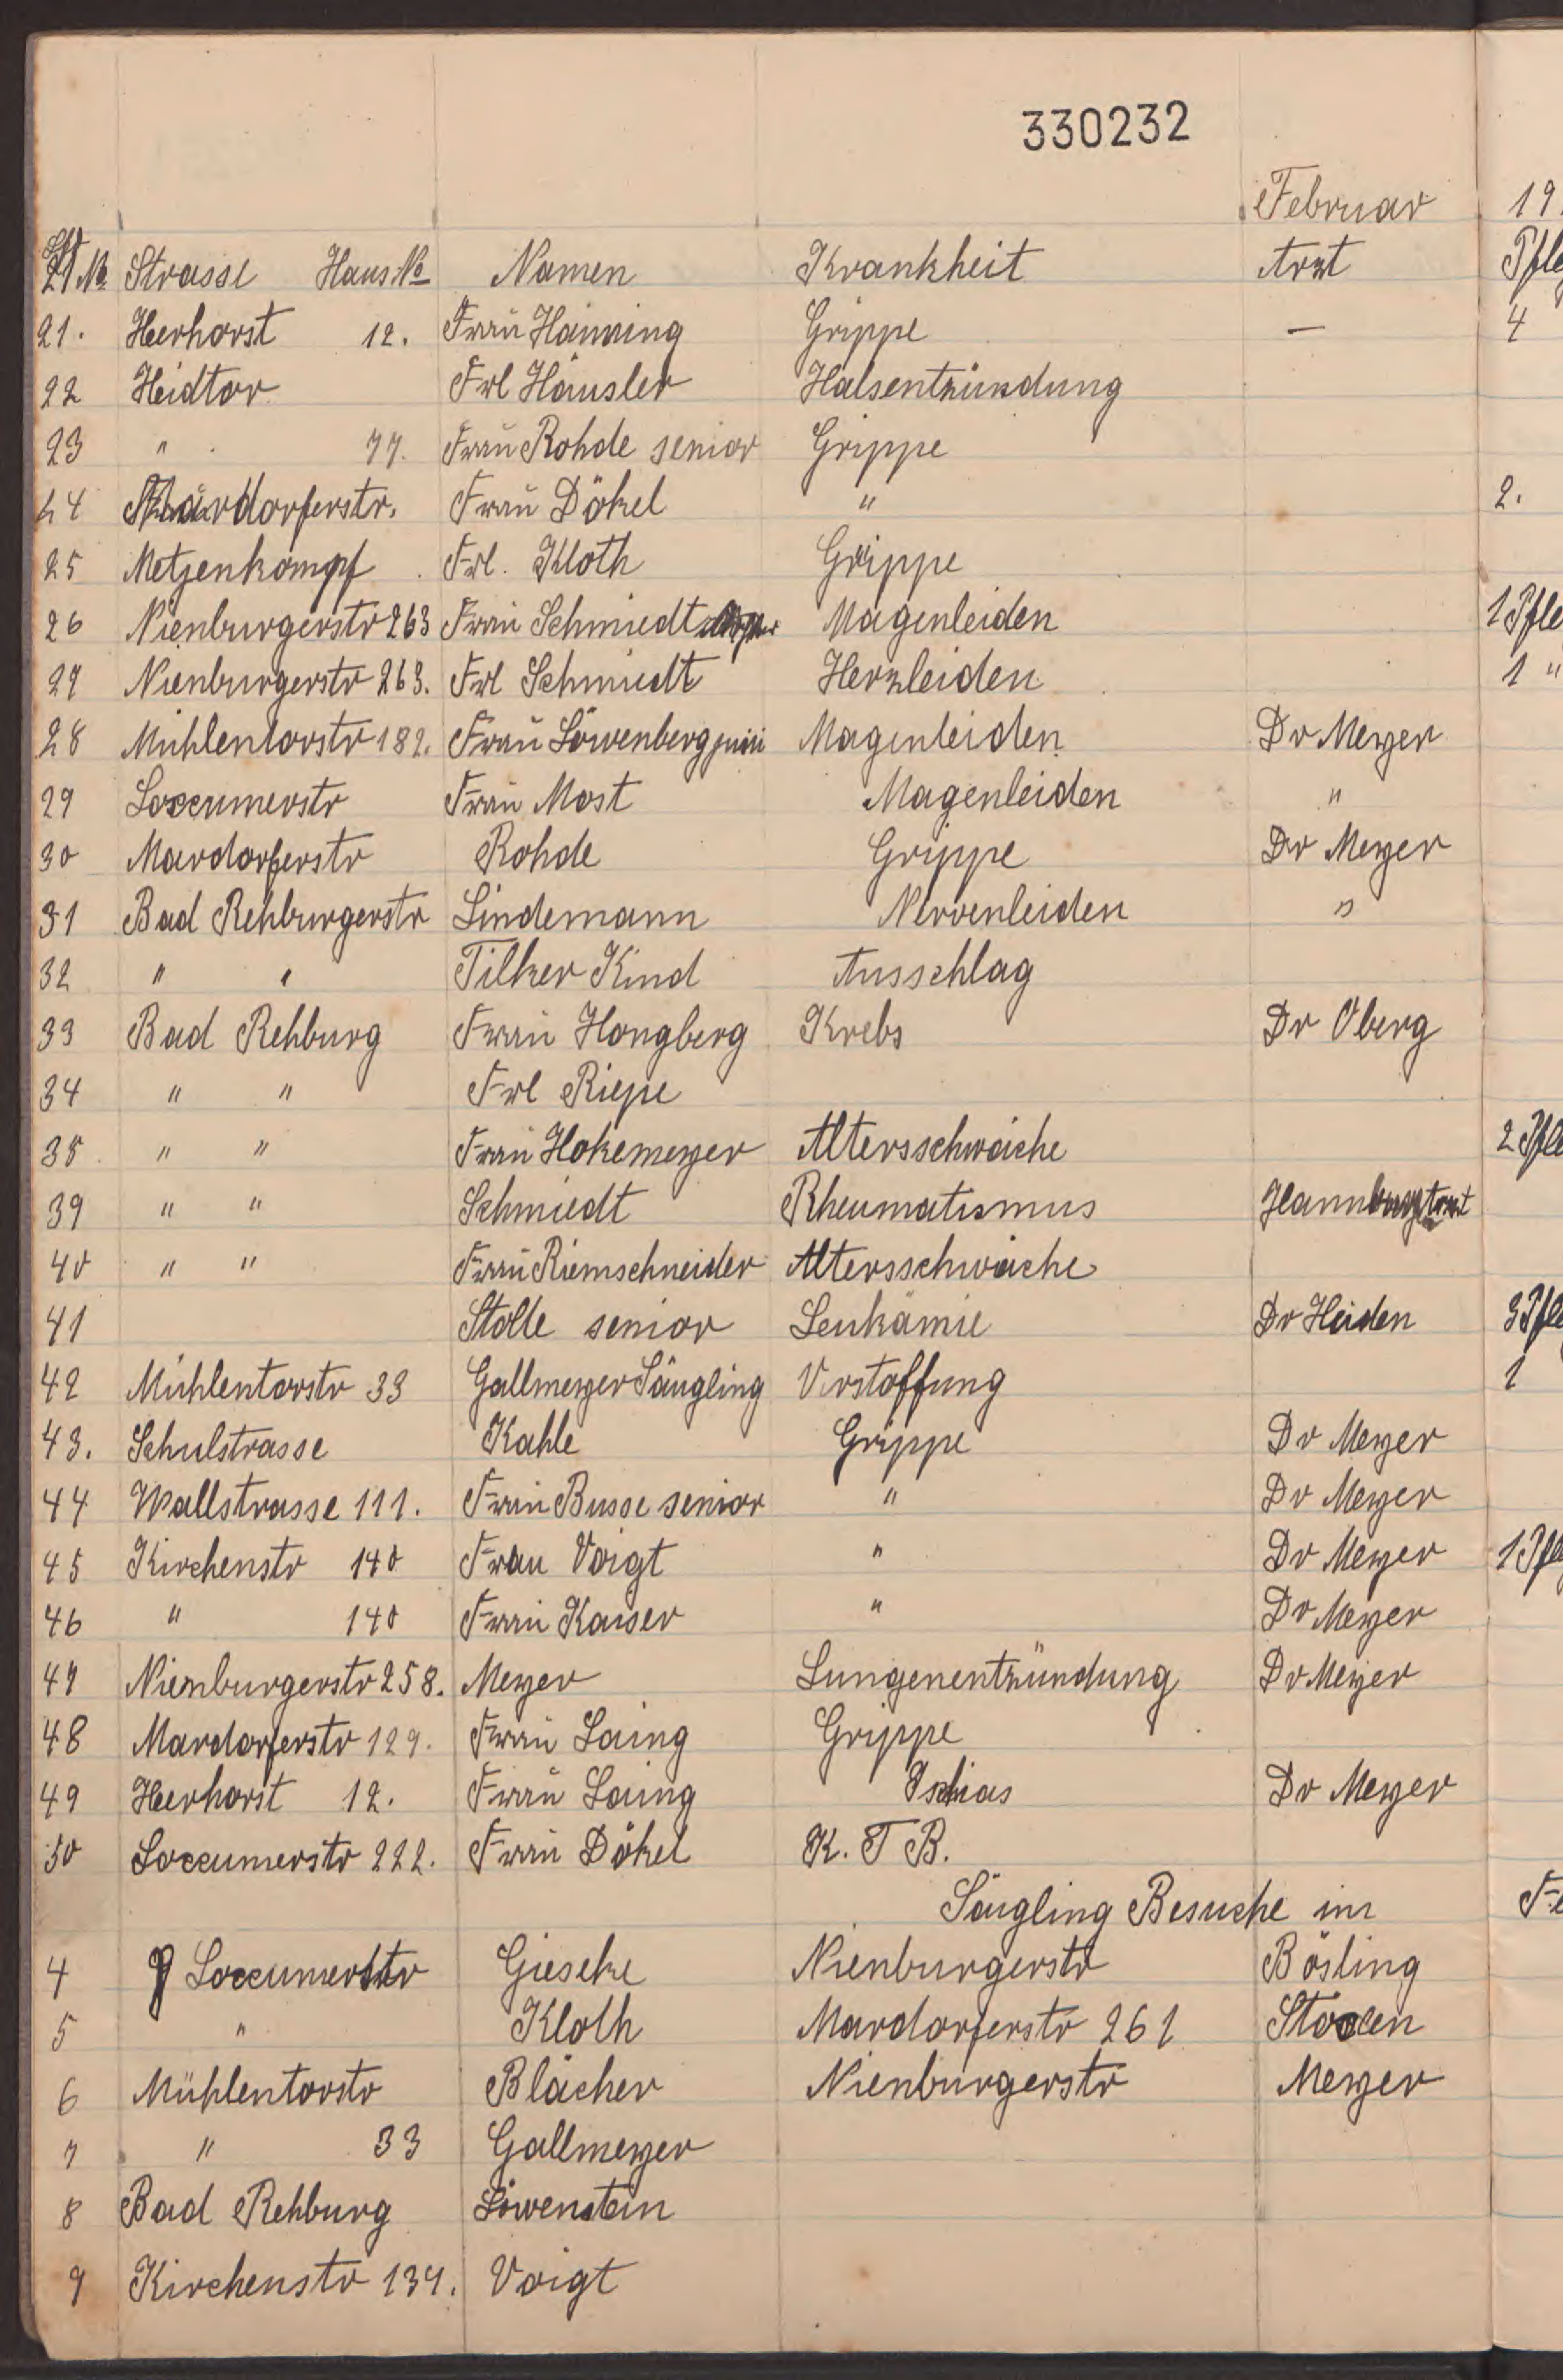 330232
Februar 19
Lfd No Strasse Haus No Namen Krankheit Arzt Pfle
21. Heerhorst 12. Frau Hanning Grippe — 4
22 Heidtor Frl Häusler Halsentzündung
23 " 77. Frau Rohde senior Grippe
24 Mardorferstr. Frau Dökel " 2.
25 Metzenkampf Frl. Kloth Grippe
26 Nienburgerstr 263 Frau Schmiedt Magenleiden 1 Pfle
27 Nienburgerstr 263. Frl Schmiedt Herzleiden 1 "
28 Mühlentorstr 182. Frau Löwenberg Magenleiden Dr Meyer
29 Loccumerstr Frau Most Magenleiden "
30 Mardorferstr Rohde Grippe Dr Meyer
31 Bad Rehburgerstr Lindemann Nervenleiden "
32 " " Tilker Kind Ausschlag
33 Bad Rehburg Frau Hongberg Krebs Dr Oberg
34 " " Frl Riepe
35 " " Frau Hokemeyer Altersschwäche 2 Pfle
39 " " Schmiedt Rheumatismus
40 " " Frau Riemschneider Altersschwäche
41 Stolle senior Leukämie Dr Heiden 3 Pfle
42 Mühlentorstr 33 Gallmeyer Säugling Verstoffung 1
43. Schulstrasse Kahle Grippe Dr Meyer
44 Wallstrasse 111. Frau Busse senior " Dr Meyer
45 Kirchenstr 140 Frau Voigt " Dr Meyer 1 Pfle
46 " 140 Frau Kaiser " Dr Meyer
47 Nienburgerstr 258. Meyer Lungenentzündung Dr Meyer
48 Mardorferstr 129. Frau Laing Grippe
49 Heerhorst 12. Frau Laing Ischias Dr Meyer
50 Loccumerstr 222. Frau Dökel K. T B.
Säugling Besuche im Fe
4 Loccumerstr Gieseke Nienburgerstr Bösling
5 " Kloth Mardorferstr 261 Stocken
6 Mühlentorstr Blächer Nienburgerstr Meyer
7 " 33 Gallmeyer
8 Bad Rehburg Löwenstein
9 Kirchenstr 137. Voigt